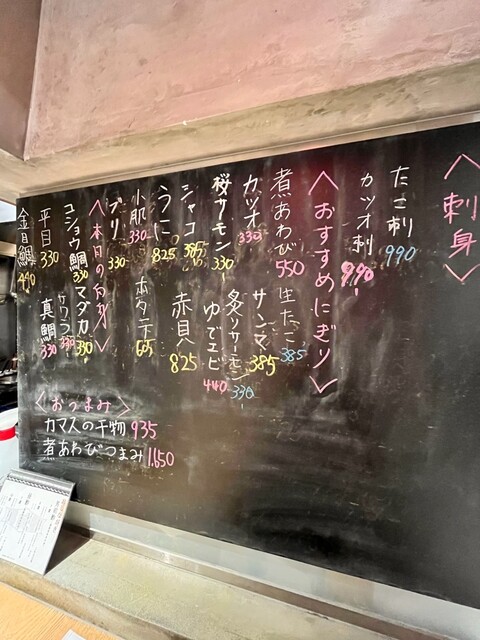 〈刺身〉
たこ刺 990
カツオ刺 990
〈おすすめにぎり〉
煮あわび 550
生たこ 385
カツオ 330
サンマ 385
桜サーモン 330
炙りサーモン 330
シャコ 385
ゆでエビ 440
うに 825
赤貝 825
小肌 330
ホタテ
ブリ 330
〈本日の白身〉
コショウ鯛 330
マダカ 330
サワラ 330
平目 330
真鯛 330
金目鯛 440
〈おつまみ〉
カマスの干物 935
煮あわびつまみ 1.650